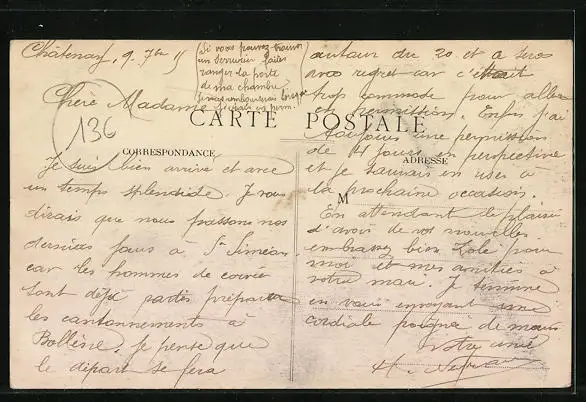 Châtenay, 9. 7bre 15
(Si vous pouvez trouver
un serrurier faites
ranger la porte
de ma chambre
lorsque
je serai en perm.)
Chère Madame
136
CARTE POSTALE
CORRESPONDANCE
ADRESSE
M
Je suis bien arrivé et avec
un temps splendide. Je vous
dirais que nous passons nos
derniers jours à St Siméon
car les hommes de corvée
sont déjà partis préparer
les cantonnements à
Bollène. je pense que
le départ se fera
autour du 20 et à gros
nos regret car c'était
trop commode pour aller
en permission. Enfin j'ai
toujours une permission
de 4 jours en perspective
et je saurais en user à
la prochaine occasion.
En attendant le plaisir
d'avoir de vos nouvelles
embrassez bien Lolé pour
moi et mes amitiés à
votre mari. Je termine
en vous envoyant une
cordiale poignée de main
Votre ami